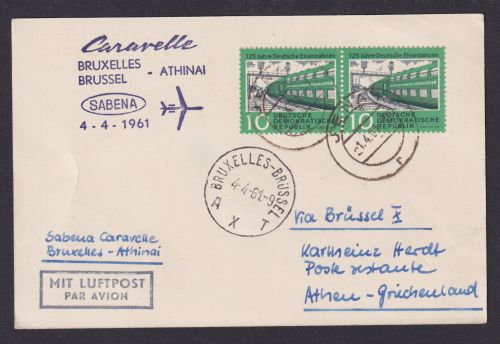 Caravelle
BRUXELLES
BRUSSEL - ATHINAI
SABENA
4-4-1961
125 Jahre Deutsche Eisenbahnen
10 DEUTSCHE DEMOKRATISCHE REPUBLIK
125 Jahre Deutsche Eisenbahnen
10 DEUTSCHE DEMOKRATISCHE REPUBLIK
BRUXELLES-BRÜSSEL
4-4-61-9
A X T
Sabena Caravelle
Bruxelles - Athinai
MIT LUFTPOST
PAR AVION
via Brüssel X
Karlheinz Herdt
Poste restante
Athen - Griechenland